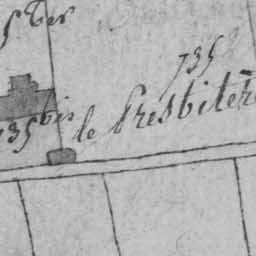 5 ter
735
735 bis le Presbitère